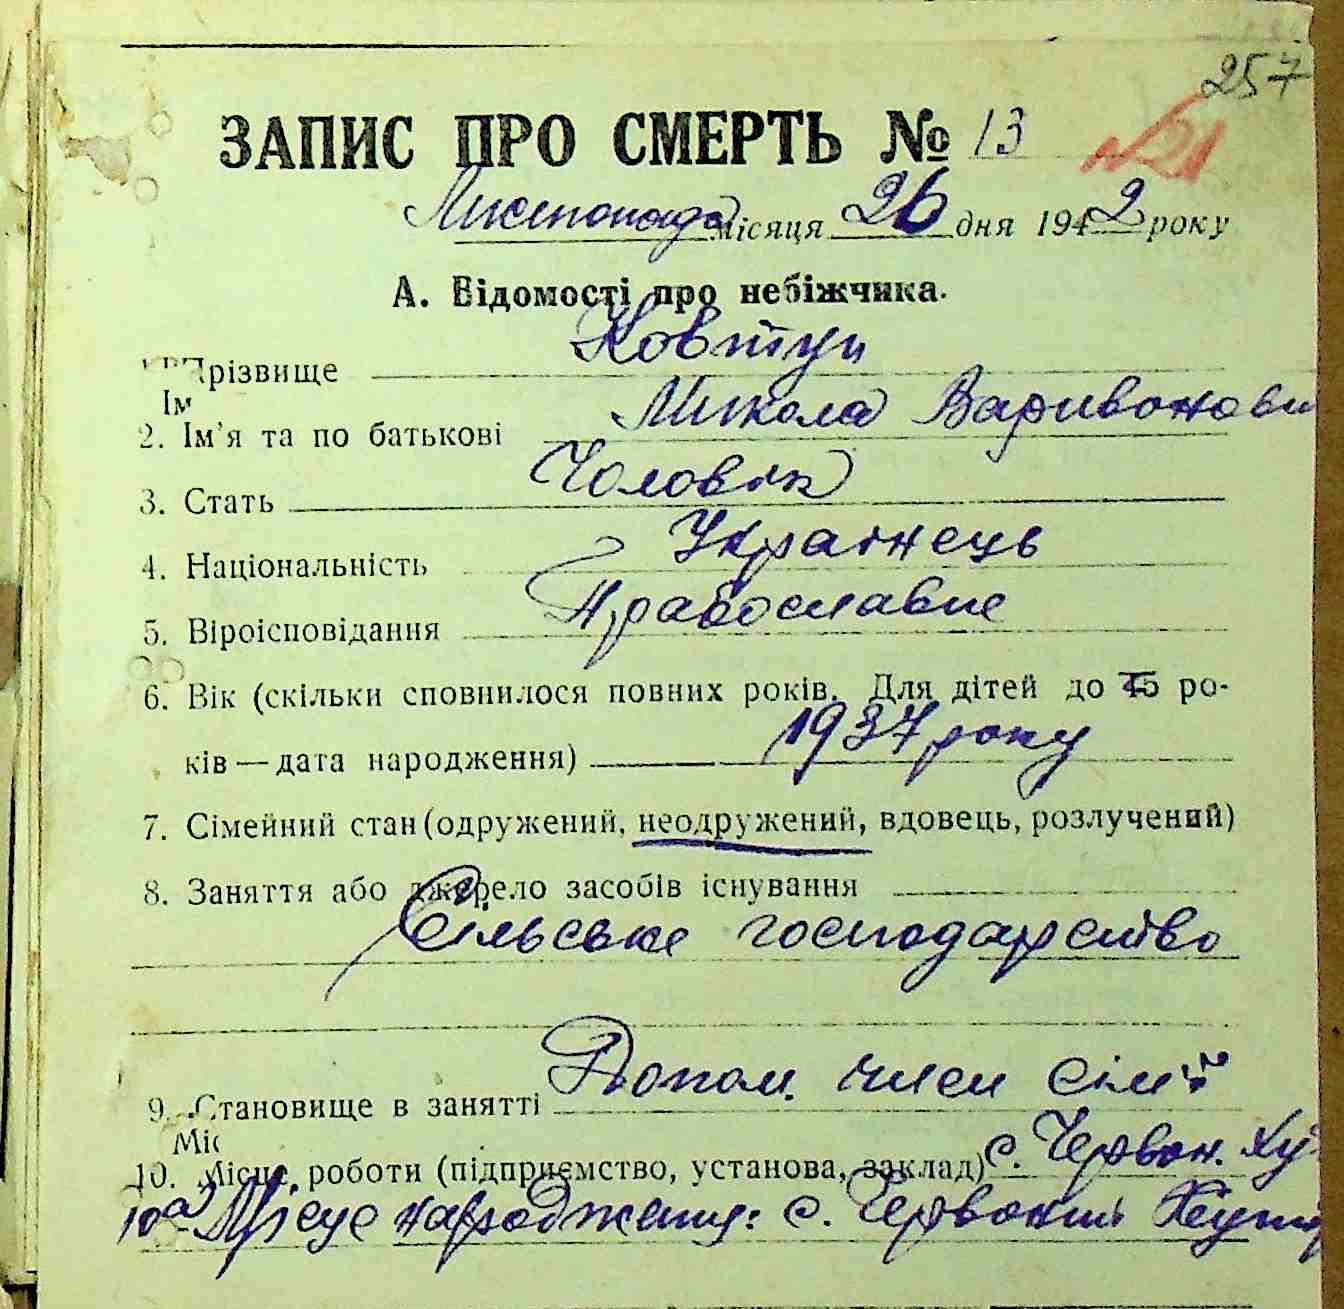 257
ЗАПИС ПРО СМЕРТЬ № 13
№21
Листопада місяця 26 дня 1942 року
А. Відомості про небіжчика.
Прізвище Ковтун
Ім
2. Ім'я та по батькові Микола Варивонови
3. Стать Чоловік
4. Національність Українець
5. Віроісповідання Православне
6. Вік (скільки сповнилося повних років. Для дітей до 15 ро-
ків — дата народження) 1937 року
7. Сімейний стан (одружений, неодружений, вдовець, розлучений)
8. Заняття або джерело засобів існування
Сільське господарство
9. Становище в занятті Допом. член сім'ї
Міс
10. Місце роботи (підприємство, установа, заклад) с. Червон. Ху
10а) Місце народження: с. Червоний Хутір